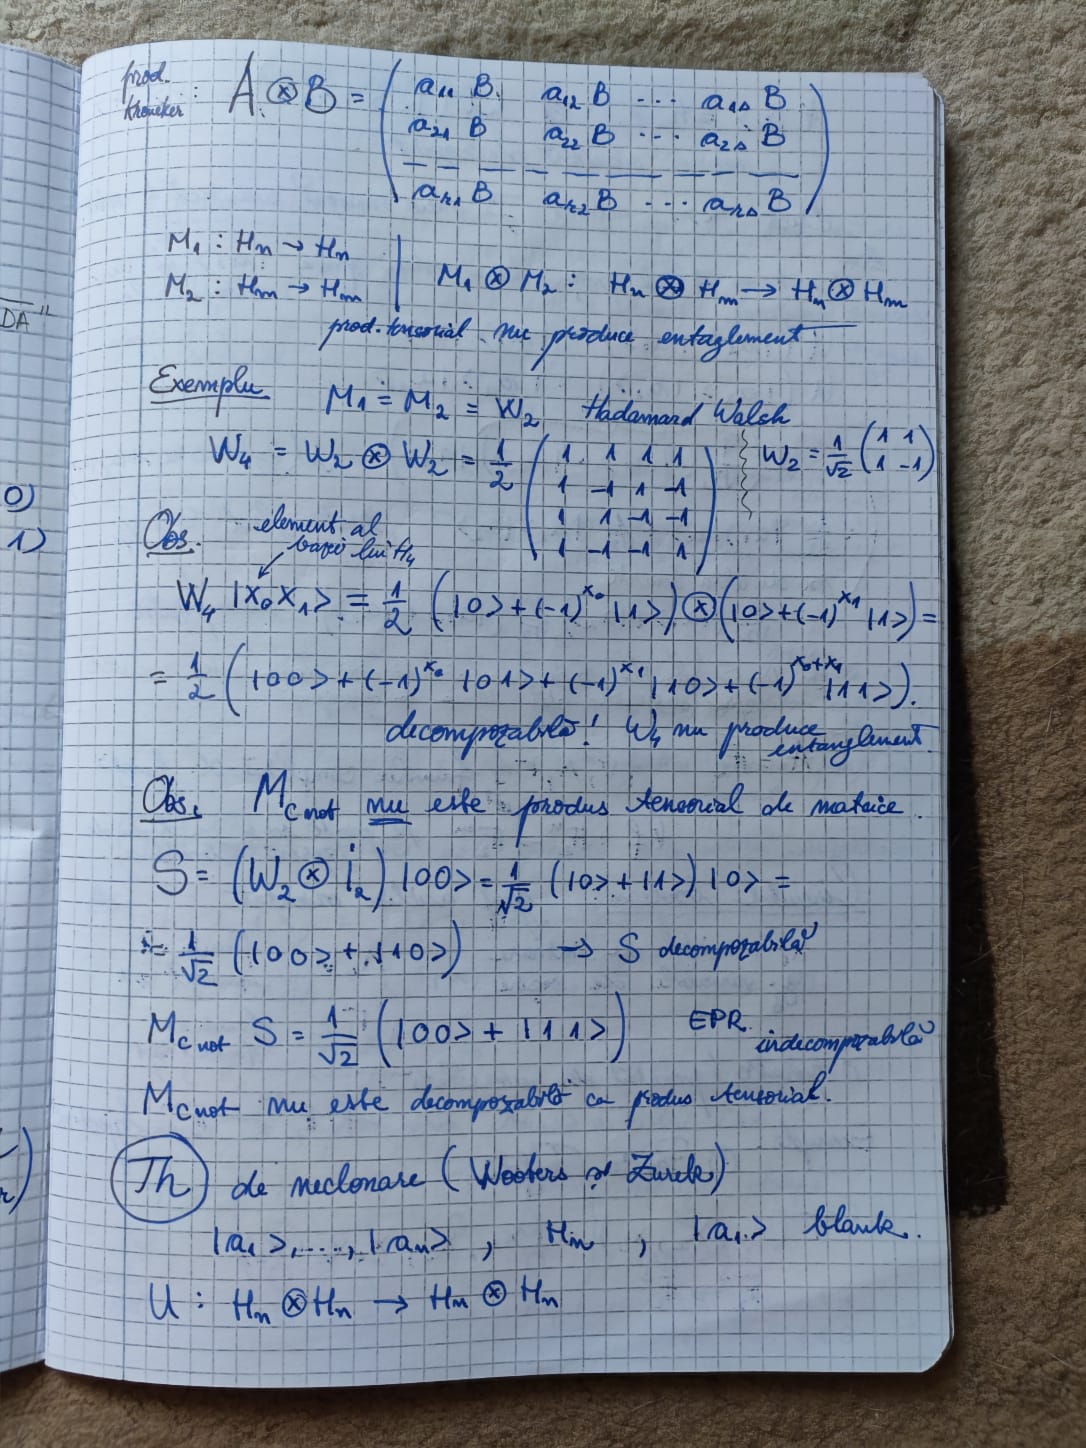 prod. Kroneker : A ⊗ B = ( a₁₁ B a₁₂ B ... a₁ₛ B
a₂₁ B a₂₂ B ... a₂ₛ B
— — — — — — — — —
aᵣ₁ B aᵣ₂ B ... aᵣₛ B )
M₁ : Hₙ → Hₙ
M₂ : Hₘ → Hₘ | M₁ ⊗ M₂ : Hₙ ⊗ Hₘ → Hₙ ⊗ Hₘ
prod. tensorial nu produce entaglement
DA"
Exemplu M₁ = M₂ = W₂ Hadamard Walsh
W₄ = W₂ ⊗ W₂ = 1/2 ( 1 1 1 1
1 -1 1 -1
1 1 -1 -1
1 -1 -1 1 ) W₂ = 1/√2 ( 1 1
1 -1 )
0)
1)
Obs. element al
bazei lui H₄
W₄ |x₀x₁> = 1/2 (|0> + (-1)^x₀ |1>) ⊗ (|0> + (-1)^x₁ |1>) =
= 1/2 (|00> + (-1)^x₀ |01> + (-1)^x₁ |10> + (-1)^x₀+x₁ |11>).
decompozabilă! W₄ nu produce
entanglement.
Obs. M_cnot nu este produs tensorial de matrice.
S = (W₂ ⊗ i₂) |00> = 1/√2 (|0> + |1>) |0> =
= 1/√2 (|00> + |10>) → S decompozabilă
M_cnot S = 1/√2 (|00> + |11>) EPR.
indecompozabilă
M_cnot nu este decompozabilă ca produs tensorial.
Th de neclonare (Wooters și Zurek)
|a₁>,...,|aₙ> , Hₙ , |a₁> blank.
U : Hₙ ⊗ Hₙ → Hₙ ⊗ Hₙ